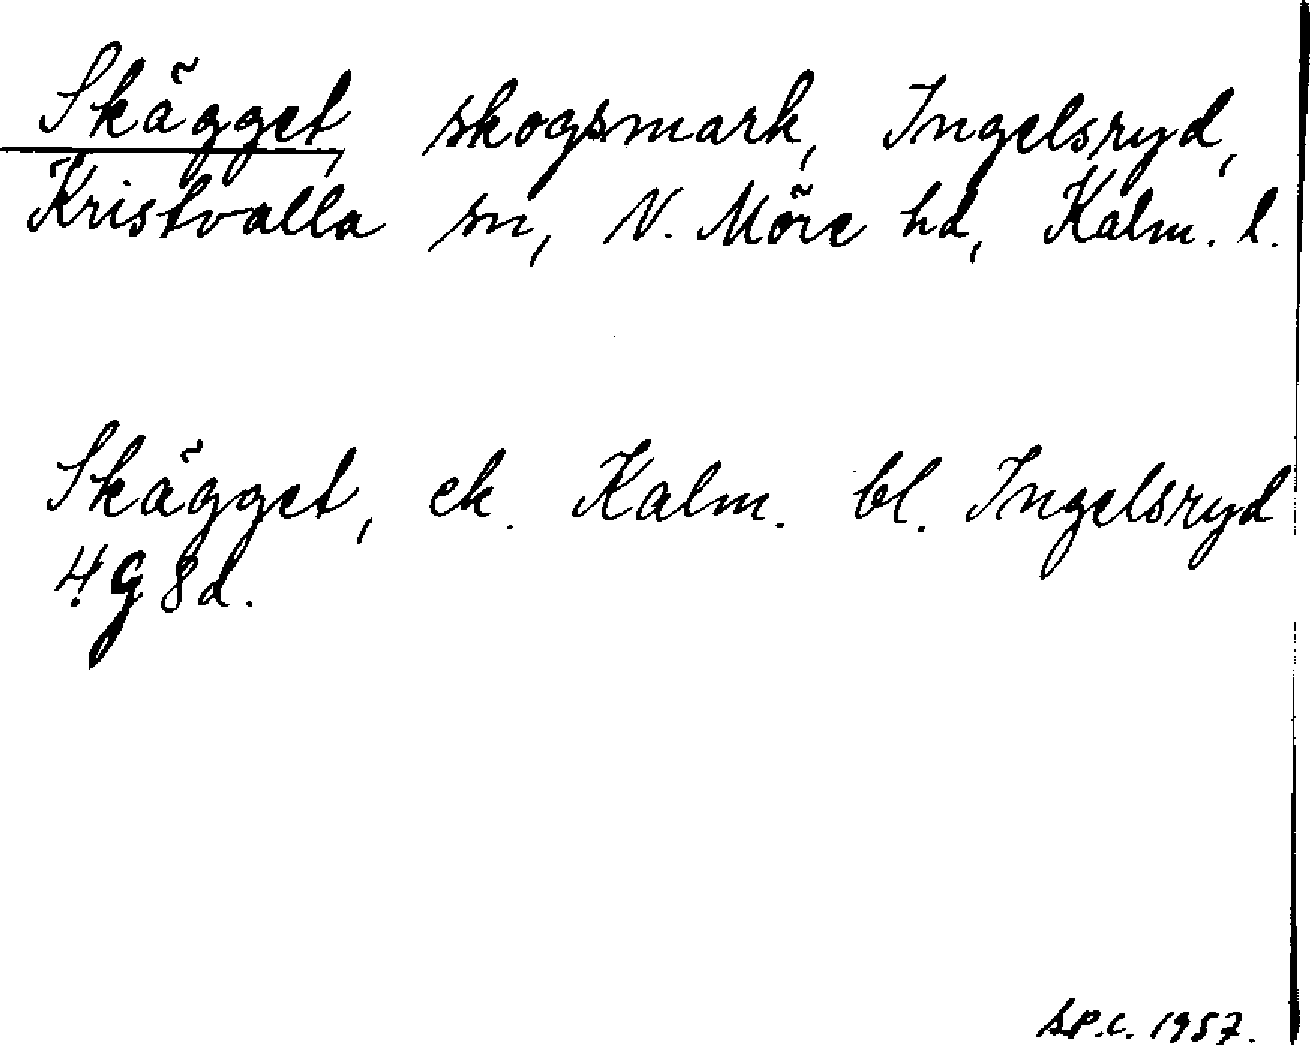 Skägget, skogsmark, Ingelsryd,
Kristvalla sn, N. Möre hd, Kalm. l.
Skägget, ek. Kalm. bl. Ingelsryd
4 G 8 d.
S.P.C. 1957.